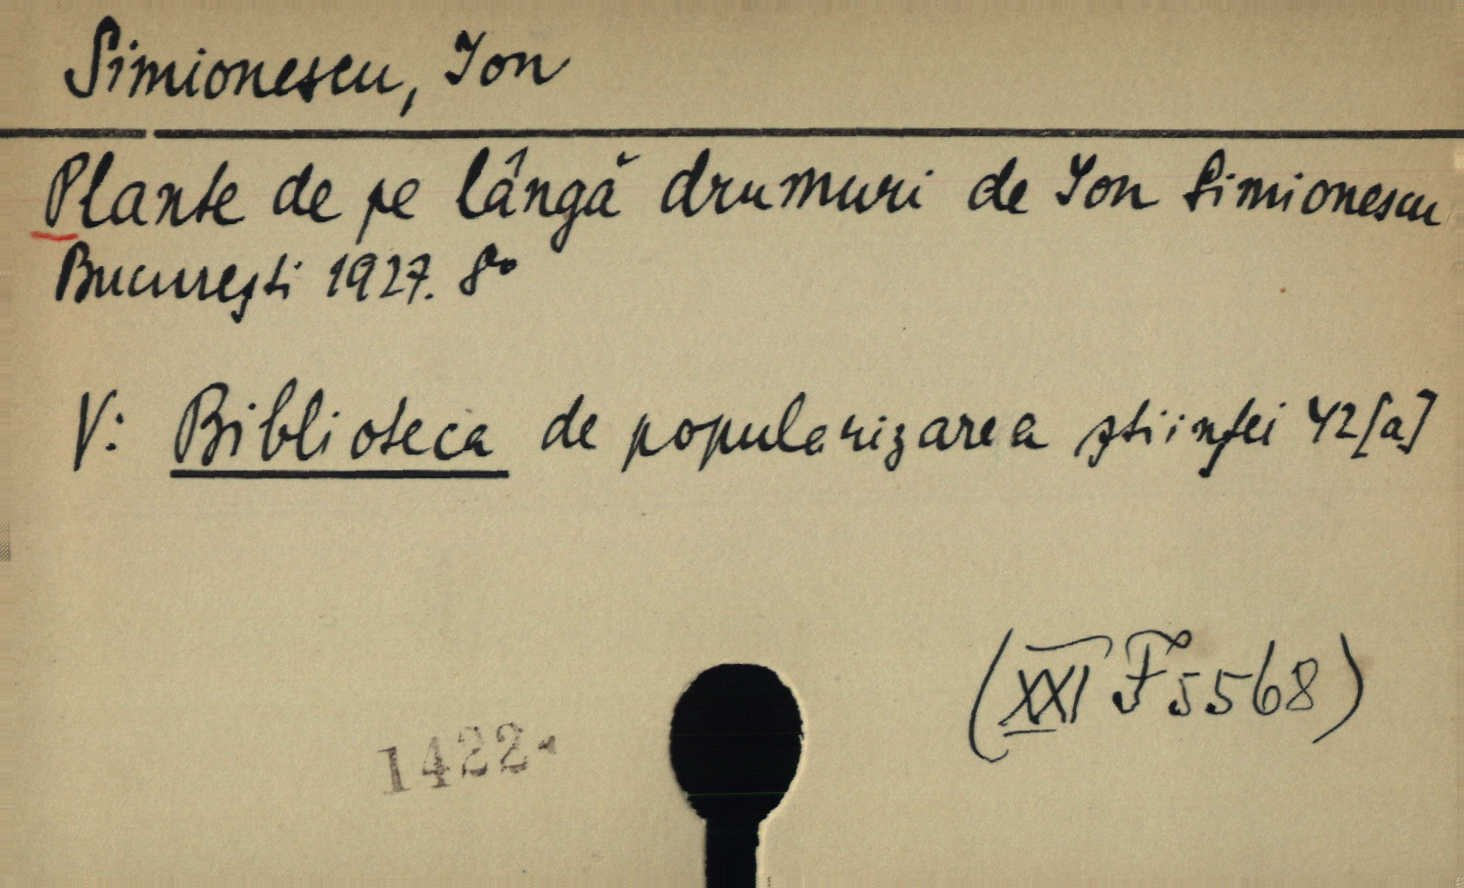 Simionescu, Ion
Plante de pe lângă drumuri de Ion Simionescu
București 1927. 8°
V: Biblioteca de popularizarea științei 42[a]
(XXI F 5568)
1422